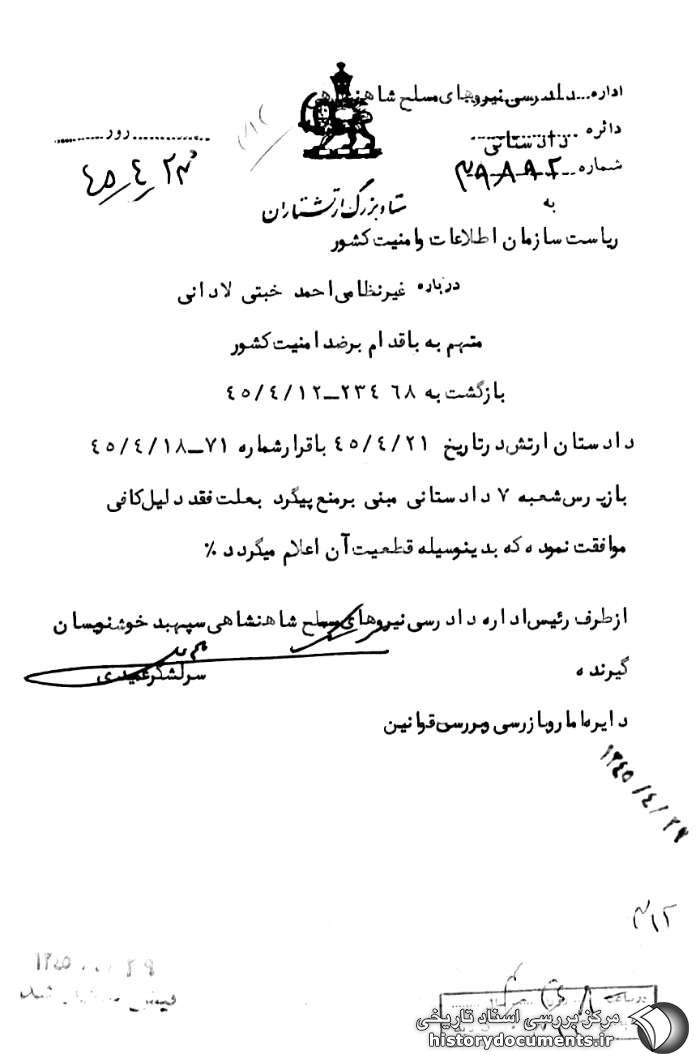 اداره دادرسی نیروهای مسلح شاهنشاهی
دائره دادستانی
شماره ۳۹۸۹۲
روز
۴۵/۴/۲۳
ستاد بزرگ ارتشتاران
به
ریاست سازمان اطلاعات وامنیت کشور
درباره غیرنظامی احمد خبتی لادانی
متهم به باقدام برضد امنیت کشور
بازگشت به ۲۳۴۶۸ــ۴۵/۴/۱۲
دادستان ارتش درتاریخ ۴۵/۴/۲۱ باقرارشماره ۷۱ــ۴۵/۴/۱۸
بازپرس شعبه ۷ دادستانی مبنی برمنع پیگرد بعلت فقد دلیل کافی
موافقت نموده که بدینوسیله قطعیت آن اعلام میگردد ٪
ازطرف رئیس اداره دادرسی نیروهای مسلح شاهنشاهی سپهبد خوشنویسان
سرلشگر عمیدی
گیرنده
دایره امار وبازرسی وبررسی قوانین
۱۳۴۵/۴/۲۹
۳۱۲
مرکز بررسی اسناد تاریخی
historydocuments.ir